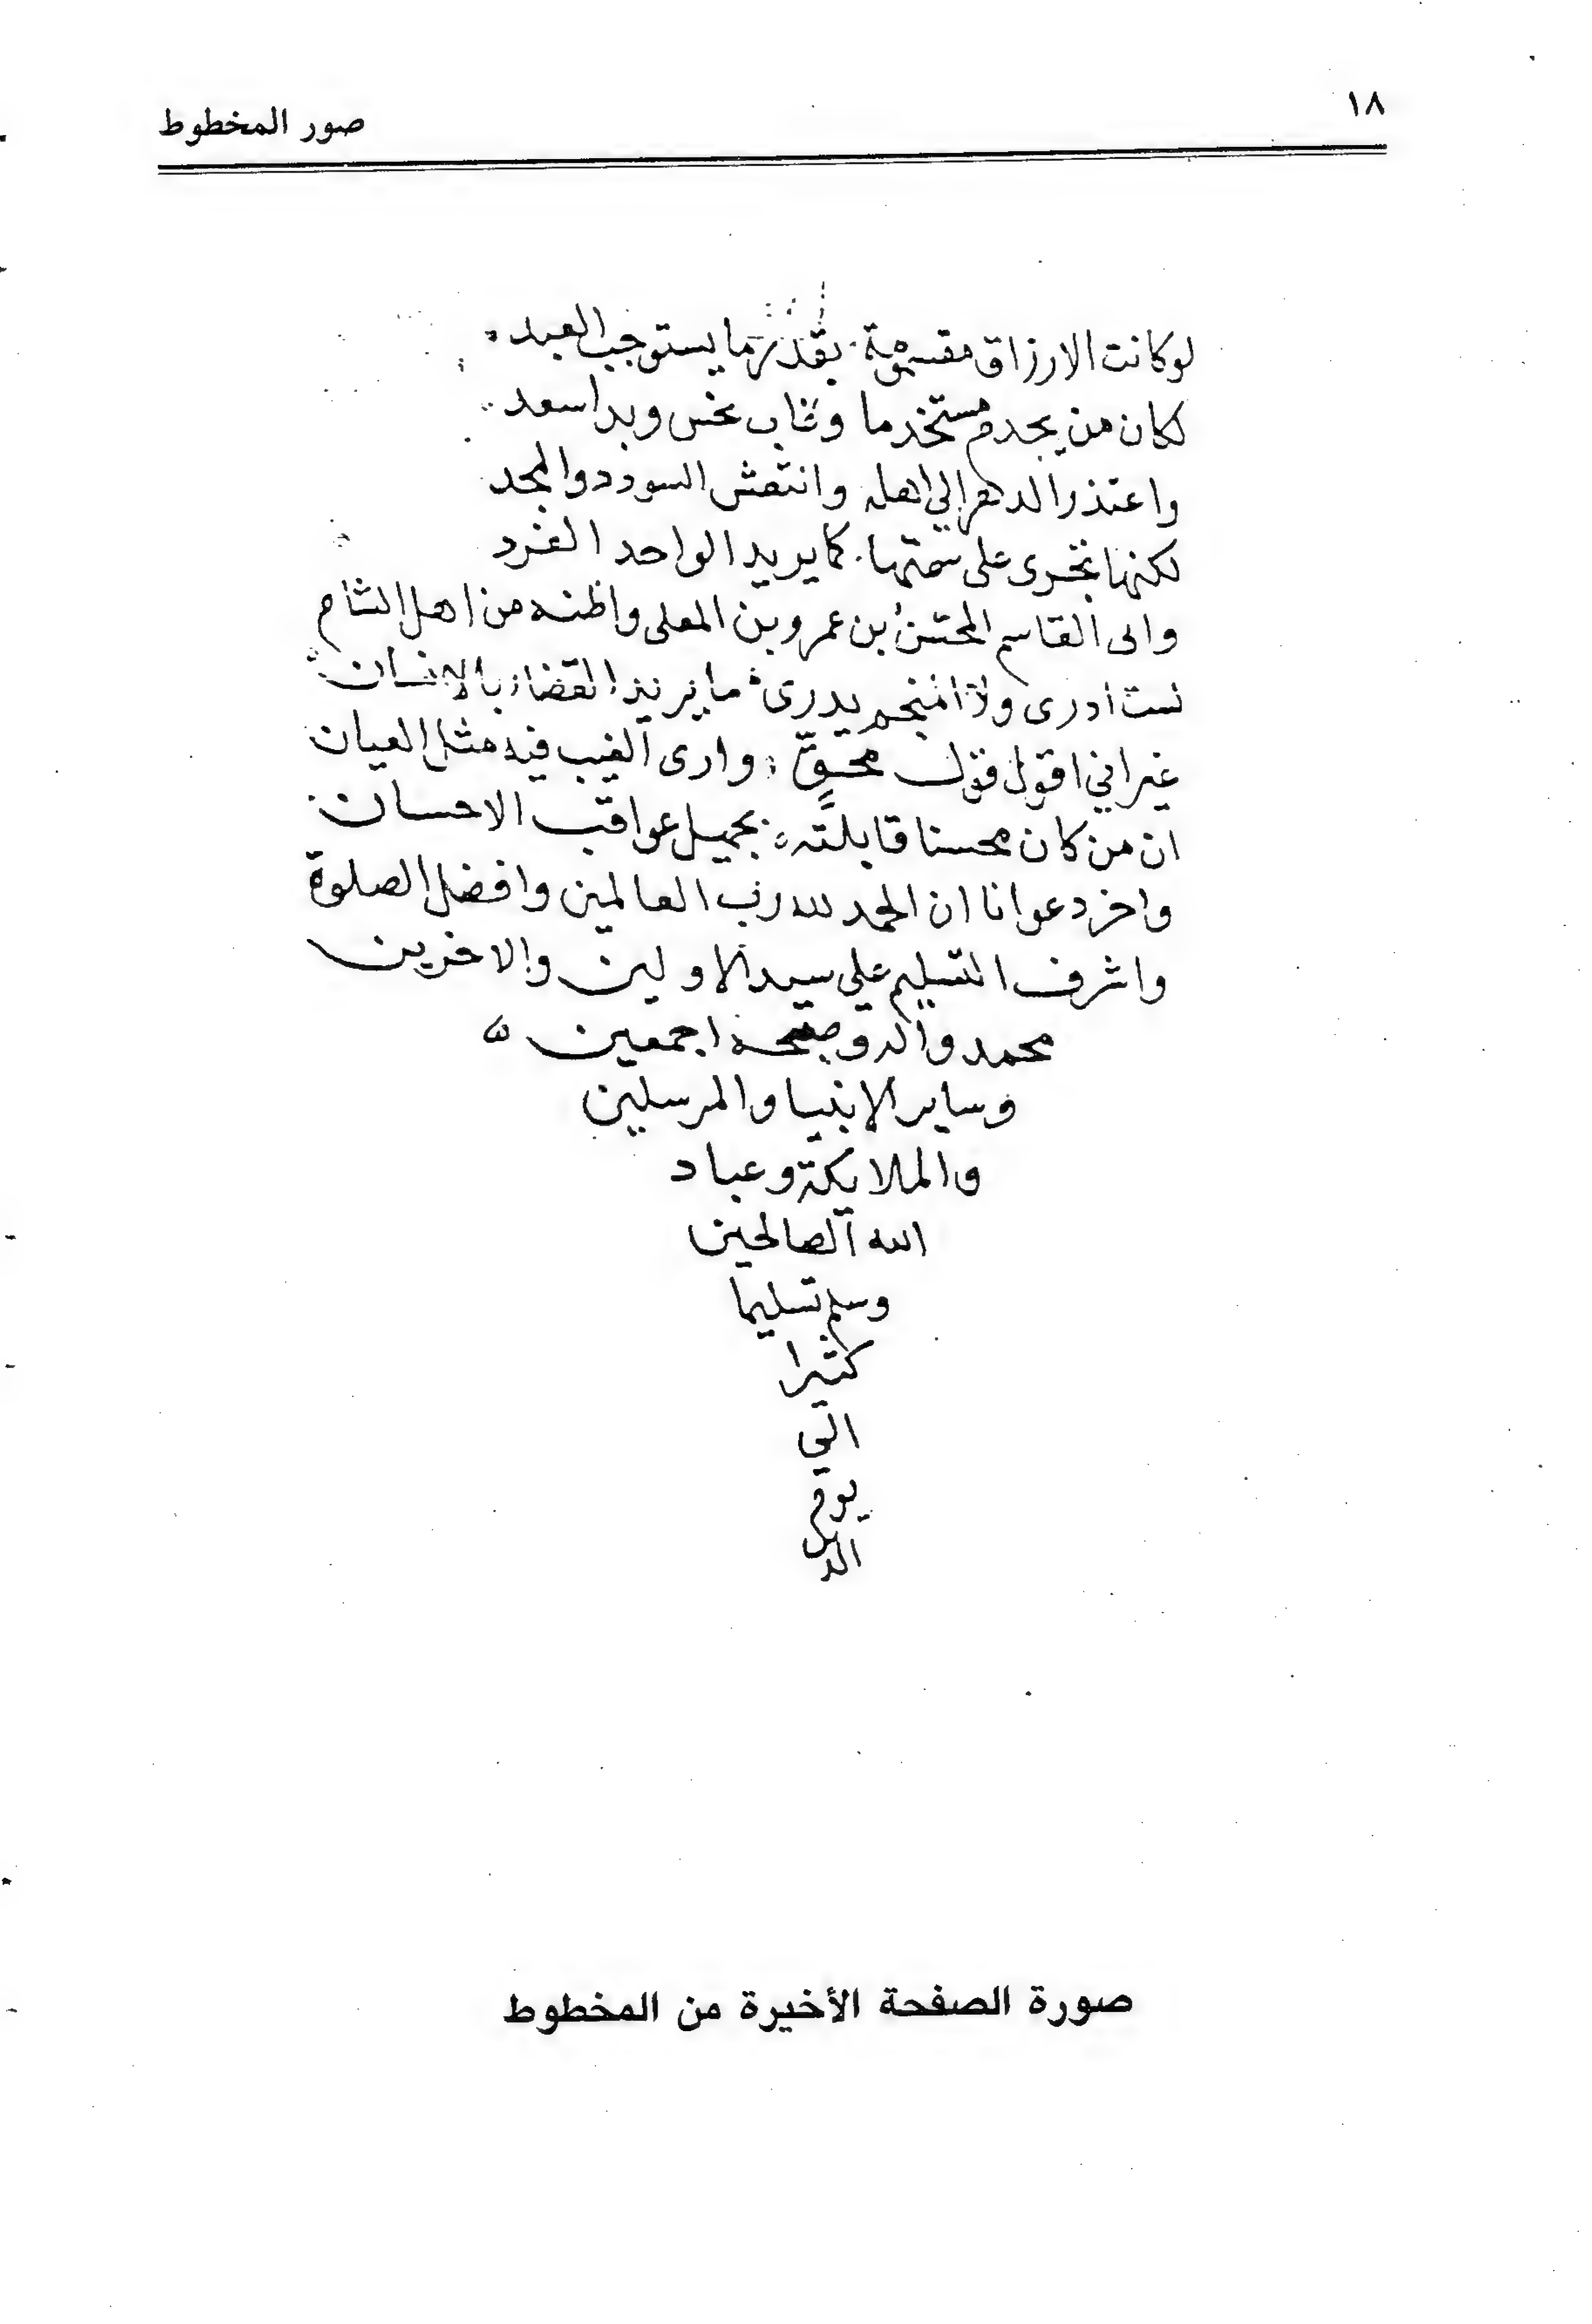 ١٨
صور المخطوط
لو كانت الارزاق مقسومة بقدر ما يستوجب العبد
لكان من يخدم مستخدما وغاب نحس وبدا سعد
واعتذر الدهر الي اهله وانتعش السودد والمجد
لكنها تجرى على سمتها كما يريد الواحد الفرد
وابى القاسم المحسن بن عمرو بن المعلى واظنه من اهل الشام
لست ادرى ولا المنجم يدرى ما يريد القضاء بالانسان
غير اني اقول قول محقٍّ وارى الغيب فيه مثل العيان
ان من كان محسنا قابلته بجميل عواقب الاحسان
واخر دعوانا ان الحمد لله رب العالمين وافضل الصلوة
واشرف التسليم علي سيد الاولين والاخرين
محمد واله وصحبه اجمعين
وساير الانبيا والمرسلين
والملايكة وعباد
الله الصالحين
وسلم تسليما
كثيرا
الي
يوم
الدين
صورة الصفحة الأخيرة من المخطوط